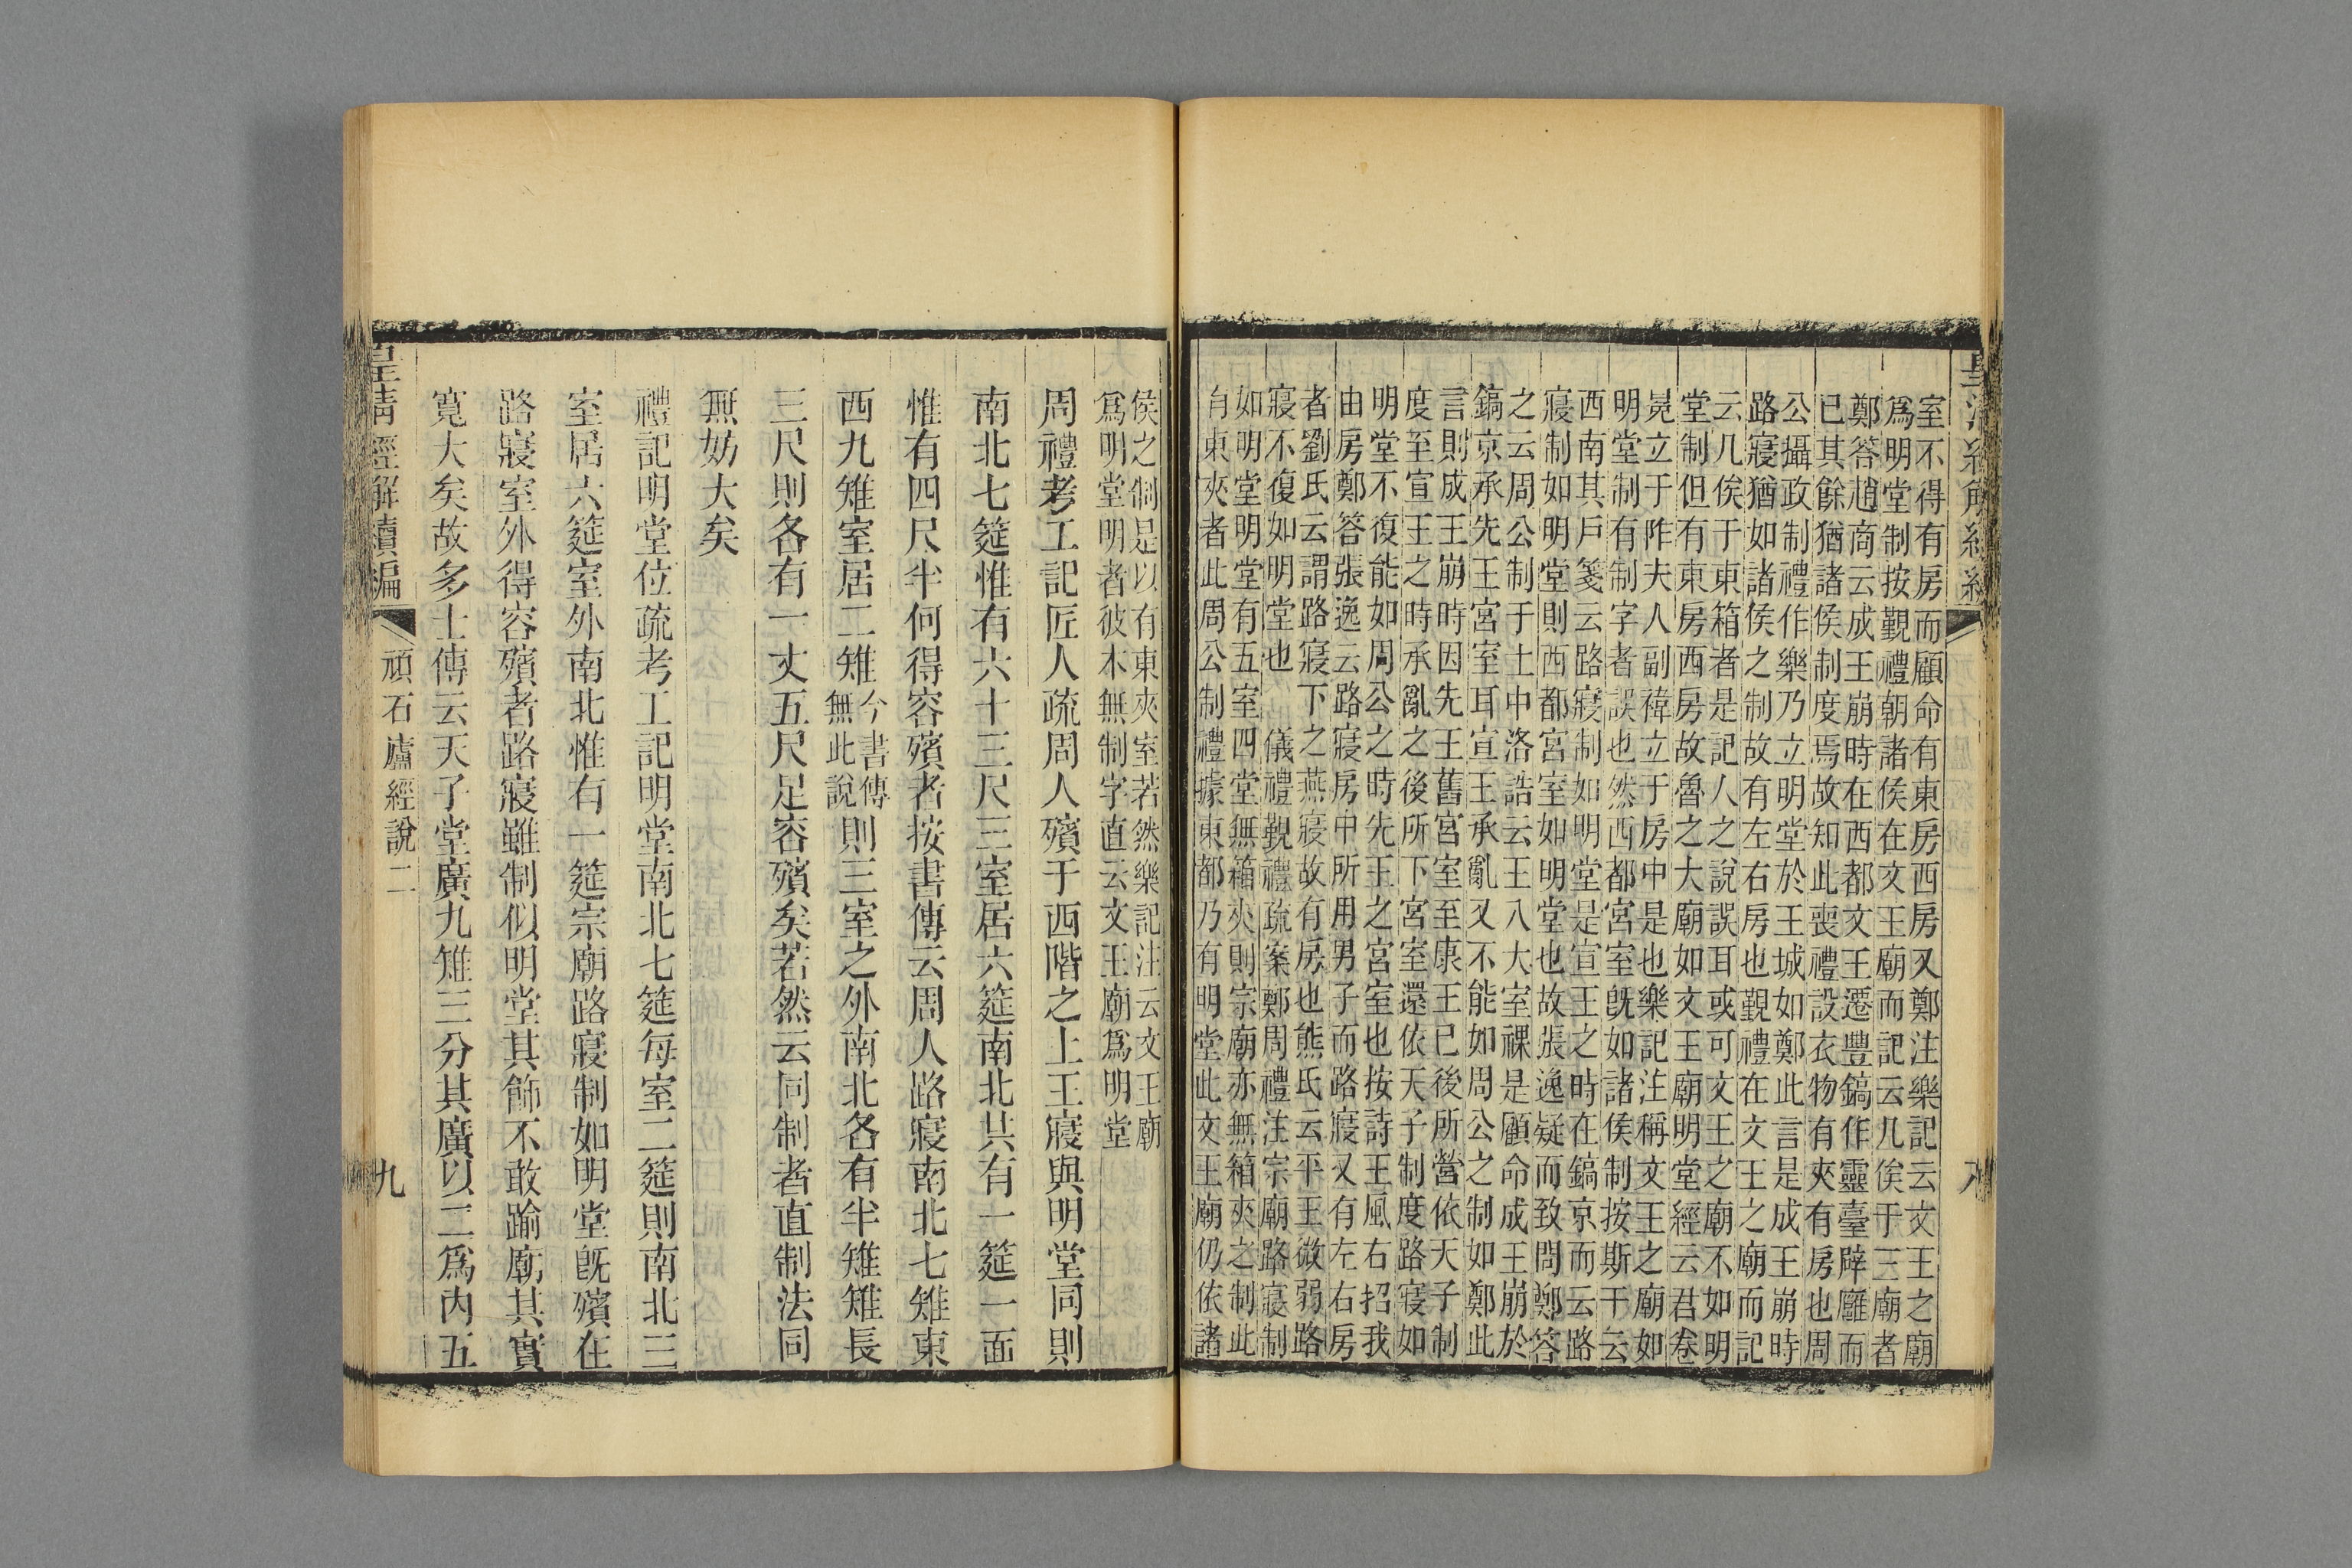 室不得有房而顧命有東房西房又鄭注樂記云文王之廟
爲明堂制按覲禮朝諸侯在文王廟而記云几俟于三廟者
鄭答趙商云成王崩時在西都文王遷豐鎬作靈臺辟廱而
已其餘猶諸侯制度焉故知此喪禮設衣物有夾有房也周
公攝政制禮作樂乃立明堂於王城如鄭此言是成王崩時
路寢猶如諸侯之制故有左右房也覲禮在文王之廟而記
云几俟于東箱者是記人之說誤耳或可文王之廟不如明
堂制但有東房西房故魯之大廟如文王廟明堂經云君卷
冕立于阼夫人副褘立于房中是也樂記注稱文王之廟如
明堂制有制字者誤也然西都宮室旣如諸侯制按斯干云
西南其戶箋云路寢制如明堂是宣王之時在鎬京而云路
寢制如明堂則西都宮室如明堂也故張逸疑而致問鄭答
之云周公制于土中洛誥云王入大室祼是顧命成王崩於
鎬京承先王宮室耳宣王承亂又不能如周公之制如鄭此
言則成王崩時因先王舊宮室至康王已後所營依天子制
度至宣王之時承亂之後所下宮室還依天子制度路寢如
明堂不復能如周公之時先王之宮室也按詩王風右招我
由房鄭答張逸云路寢房中所用男子而路寢又有左右房
者劉氏云謂路寢下之燕寢故有房也熊氏云平王微弱路
寢不復如明堂也　儀禮覲禮疏案鄭周禮注宗廟路寢制
如明堂明堂有五室四堂無箱夾則宗廟亦無箱夾之制此
有東夾者此周公制禮據東都乃有明堂此文王廟仍依諸
侯之制是以有東夾室若然樂記注云文王廟
爲明堂明者彼本無制字直云文王廟爲明堂
周禮考工記匠人疏周人殯于西階之上王寢與明堂同則
南北七筵惟有六十三尺三室居六筵南北共有一筵一面
惟有四尺半何得容殯者按書傳云周人路寢南北七雉東
西九雉室居二雉今書傳無此說則三室之外南北各有半雉雉長
三尺則各有一丈五尺足容殯矣若然云同制者直制法同
無妨大矣
禮記明堂位疏考工記明堂南北七筵每室二筵則南北三
室居六筵室外南北惟有一筵宗廟路寢制如明堂旣殯在
路寢室外得容殯者路寢雖制似明堂其飾不敢踰廟其實
寬大矣故多士傳云天子堂廣九雉三分其廣以二爲內五
皇清經解續編
頑石廬經說二
九